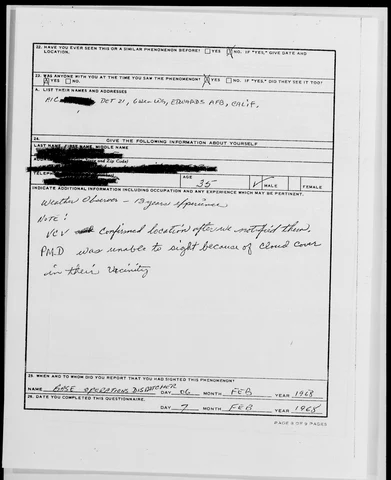 22. HAVE YOU EVER SEEN THIS OR A SIMILAR PHENOMENON BEFORE? YES NO. IF "YES," GIVE DATE AND
LOCATION.
23. WAS ANYONE WITH YOU AT THE TIME YOU SAW THE PHENOMENON? YES NO. IF "YES," DID THEY SEE IT TOO?
YES NO.
A. LIST THEIR NAMES AND ADDRESSES
A1C DET 21, 6WEA WG, EDWARDS AFB, CALIF.
24. GIVE THE FOLLOWING INFORMATION ABOUT YOURSELF
LAST NAME, FIRST NAME, MIDDLE NAME
ADDRESS Zip Code)
TELEPHONE AGE 35 MALE FEMALE
INDICATE ADDITIONAL INFORMATION INCLUDING OCCUPATION AND ANY EXPERIENCE WHICH MAY BE PERTINENT.
Weather Observer - 13 years experience
NOTE:
VCV confirmed location after we notified them
PMD was unable to sight because of cloud cover
in their vicinity
25. WHEN AND TO WHOM DID YOU REPORT THAT YOU HAD SIGHTED THIS PHENOMENON?
NAME BASE OPERATIONS DISPATCHER DAY 06 MONTH FEB YEAR 1968
26. DATE YOU COMPLETED THIS QUESTIONNAIRE.
DAY 7 MONTH FEB YEAR 1968
PAGE 9 OF 9 PAGES